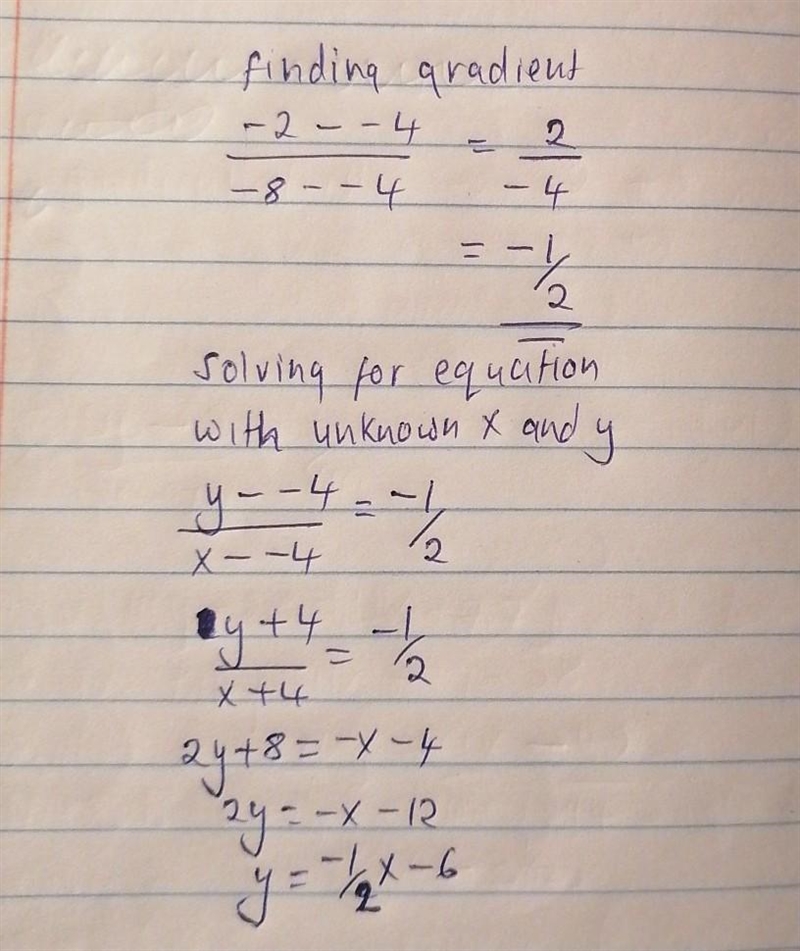 finding gradient
-2 - -4 / -8 - -4 = 2 / -4
= -1/2
Solving for equation
with unknown x and y
y - -4 / x - -4 = -1/2
y + 4 / x + 4 = -1/2
2y + 8 = -x - 4
2y = -x - 12
y = -1/2 x - 6